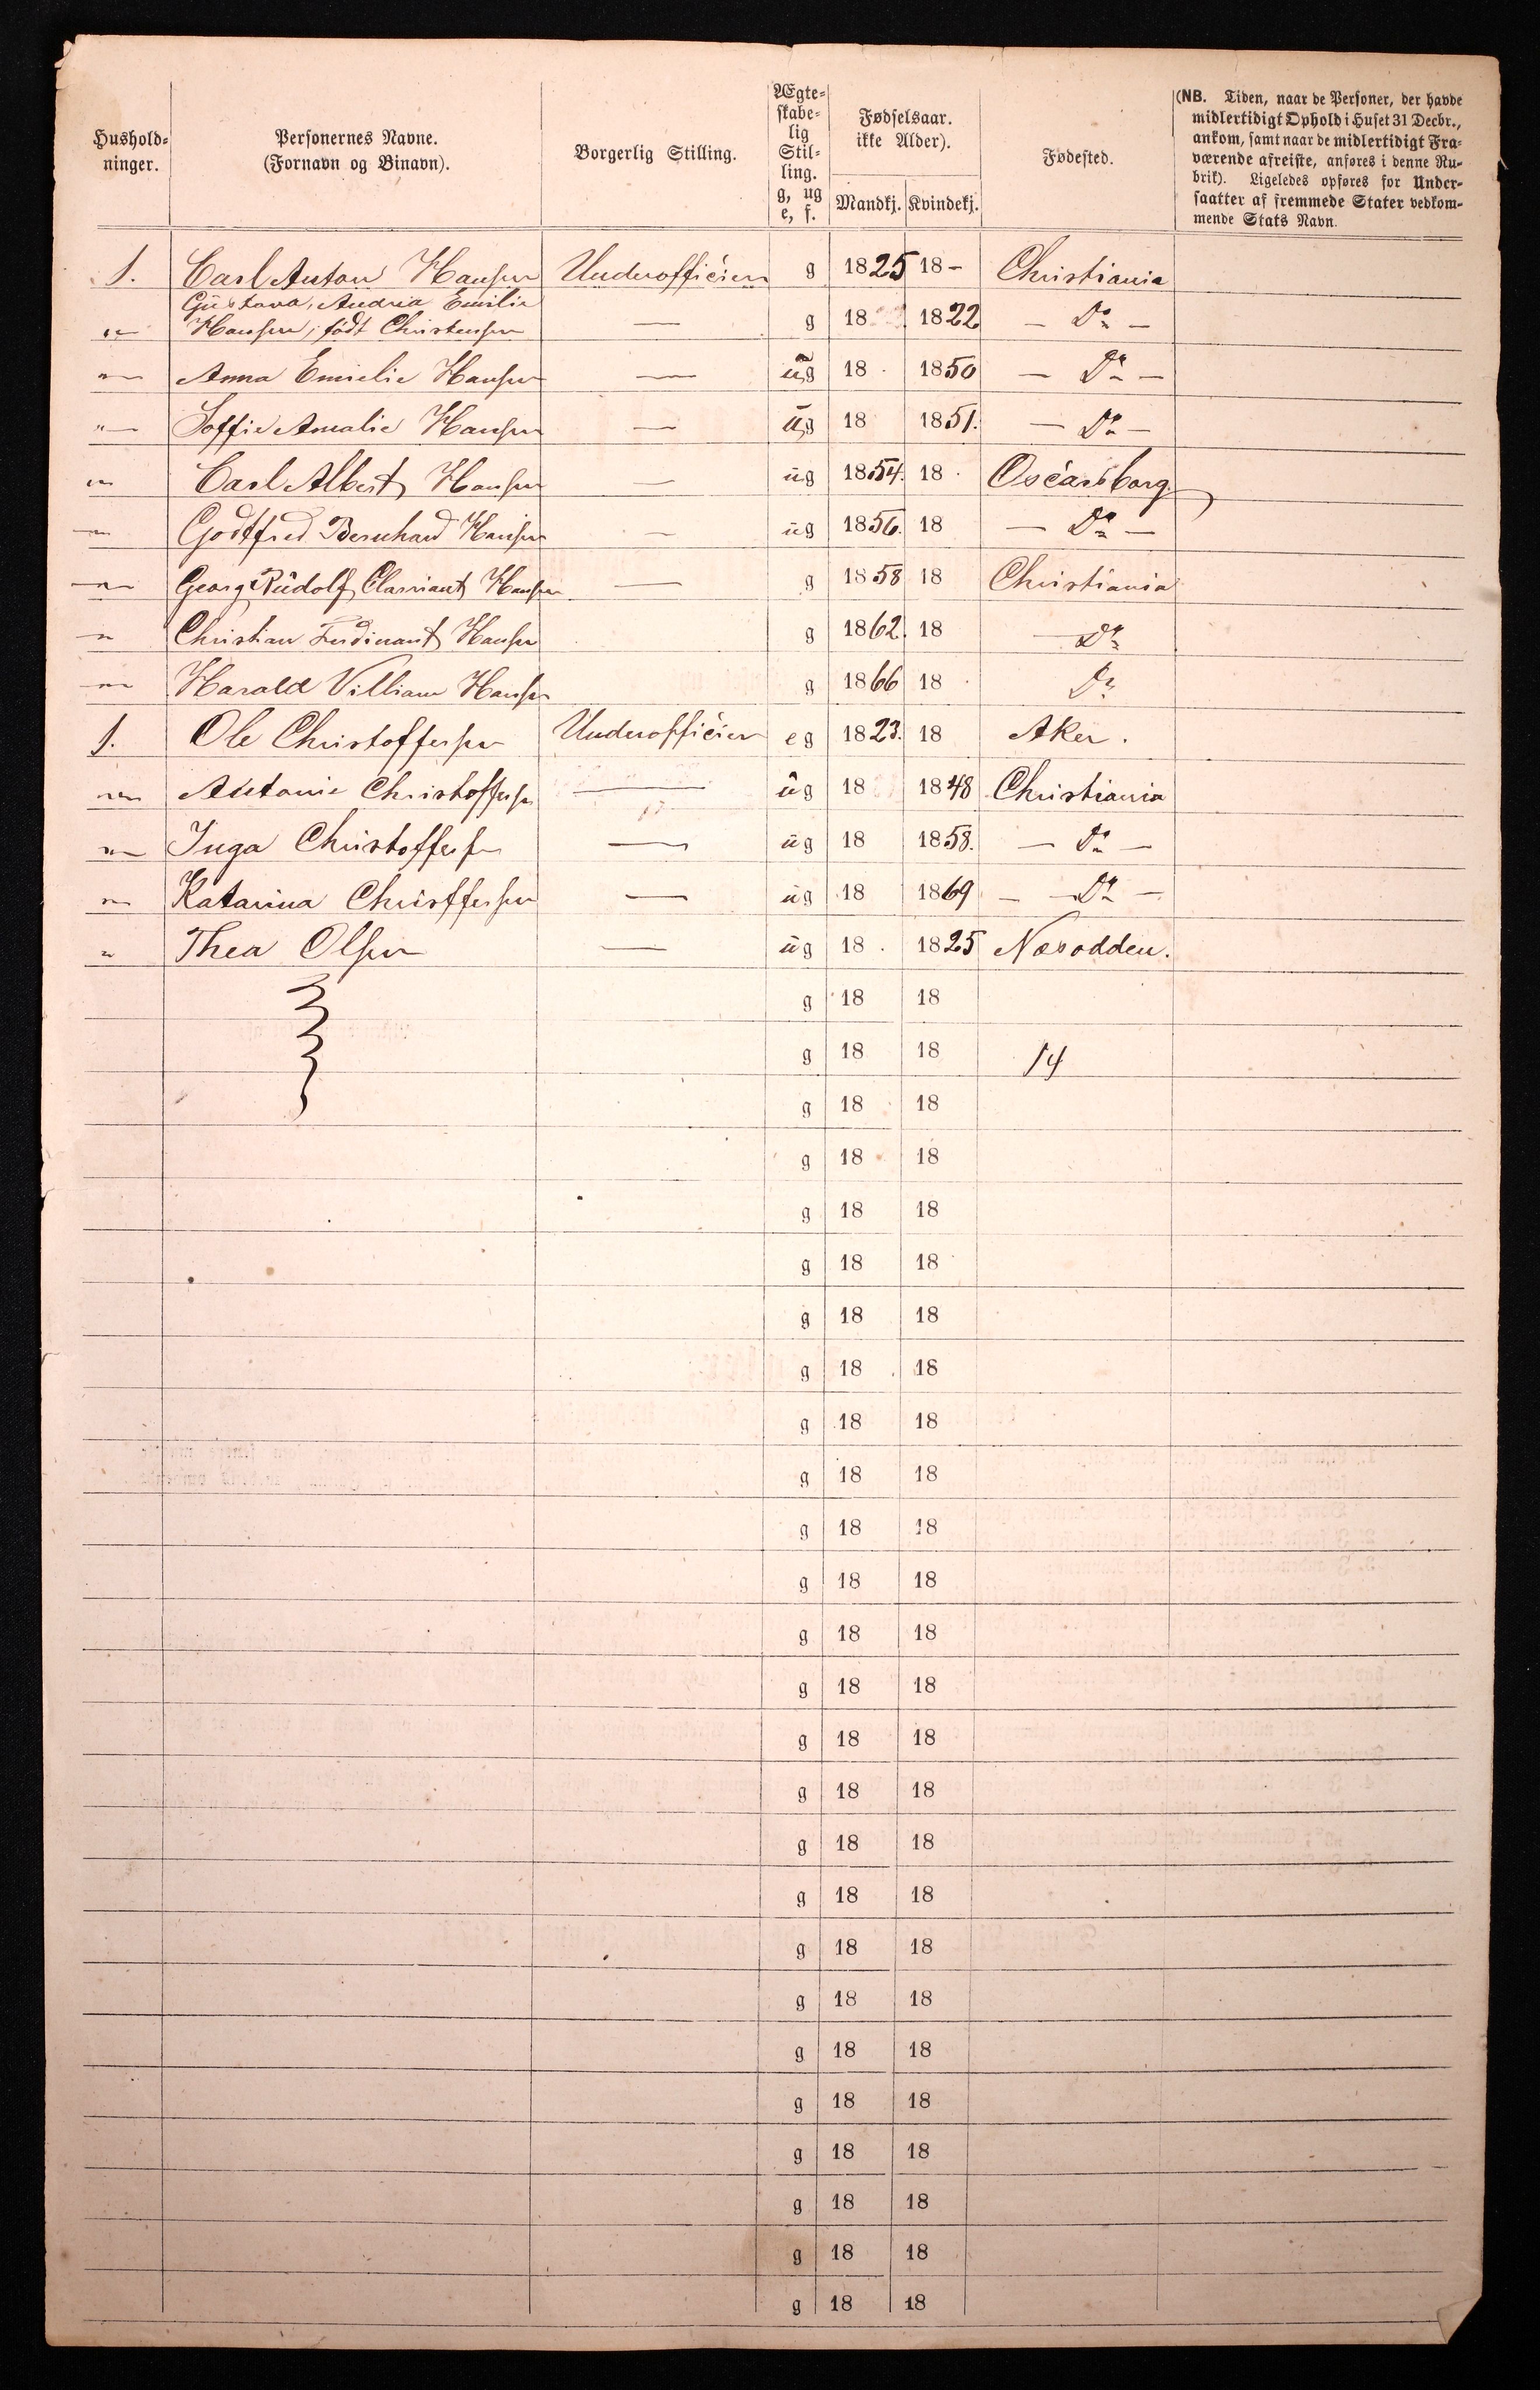 Hushold-
ninger.
Personernes Navne.
(Fornavn og Binavn).
Borgerlig Stilling.
Ægte-
skabe-
lig
Stil-
ling.
g, ug
e, f.
Fødselsaar.
ikke Alder).
Mandkj. Kvindekj.
Fødested.
(NB. Tiden, naar de Personer, der havde
midlertidigt Ophold i Huset 31 Decbr.,
ankom, samt naar de midlertidigt Fra-
værende afreiste, anføres i denne Ru-
brik). Ligeledes opføres for Under-
saatter af fremmede Stater vedkom-
mende Stats Navn.
1. Carl Anton Hansen Underofficier g 1825 18 - Christiania
Gustava, Andrea Emilie
" Hansen, født Christensen — g 18 1822 — Do —
" Anna Emielie Hansen — ug 18 1850 — Do —
" Soffie Amalie Hansen — ug 18 1851. — Do —
" Carl Albert Hansen — ug 1854. 18 Oscarsborg
" Godtfred Bernhard Hansen — ug 1856. 18 — Do —
" Georg Rudolf Hansen — g 1858 18 Christiania
" Christian Ferdinant Hansen g 1862. 18 Do
" Harald Villiam Hansen g 1866 18 Do
1. Ole Christoffersen Underofficier eg 1823. 18 Aker.
" Antonie Christoffersen — ug 18 1848 Christiania
" Inga Christoffersen — ug 18 1858. — Do —
" Katarina Christfersen — ug 18 1869 — Do —
" Thea Olsen — ug 18 1825 Næsodden.
g 18 18
g 18 18 14
g 18 18
g 18 18
g 18 18
g 18 18
g 18 18
g 18 18
g 18 18
g 18 18
g 18 18
g 18 18
g 18 18
g 18 18
g 18 18
g 18 18
g 18 18
g 18 18
g 18 18
g 18 18
g 18 18
g 18 18
g 18 18
g 18 18
g 18 18
g 18 18